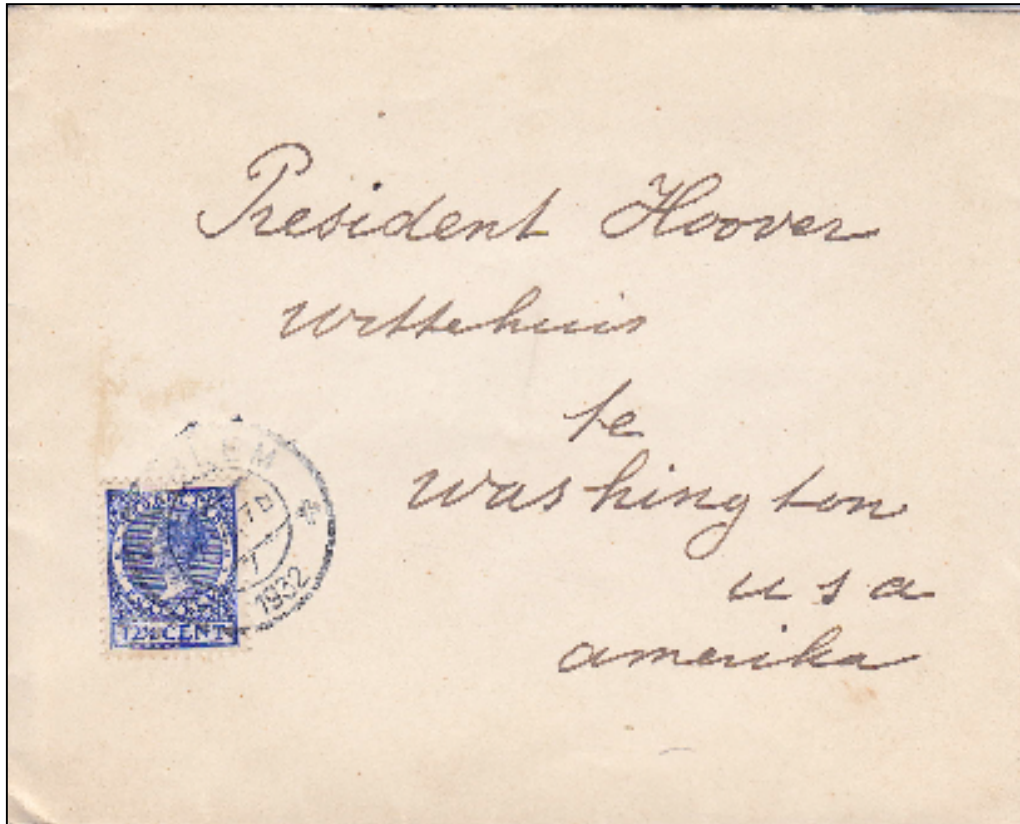 President Hoover
Wittehuis
te
Washington
u s a
amerika
1932
12½ CENT